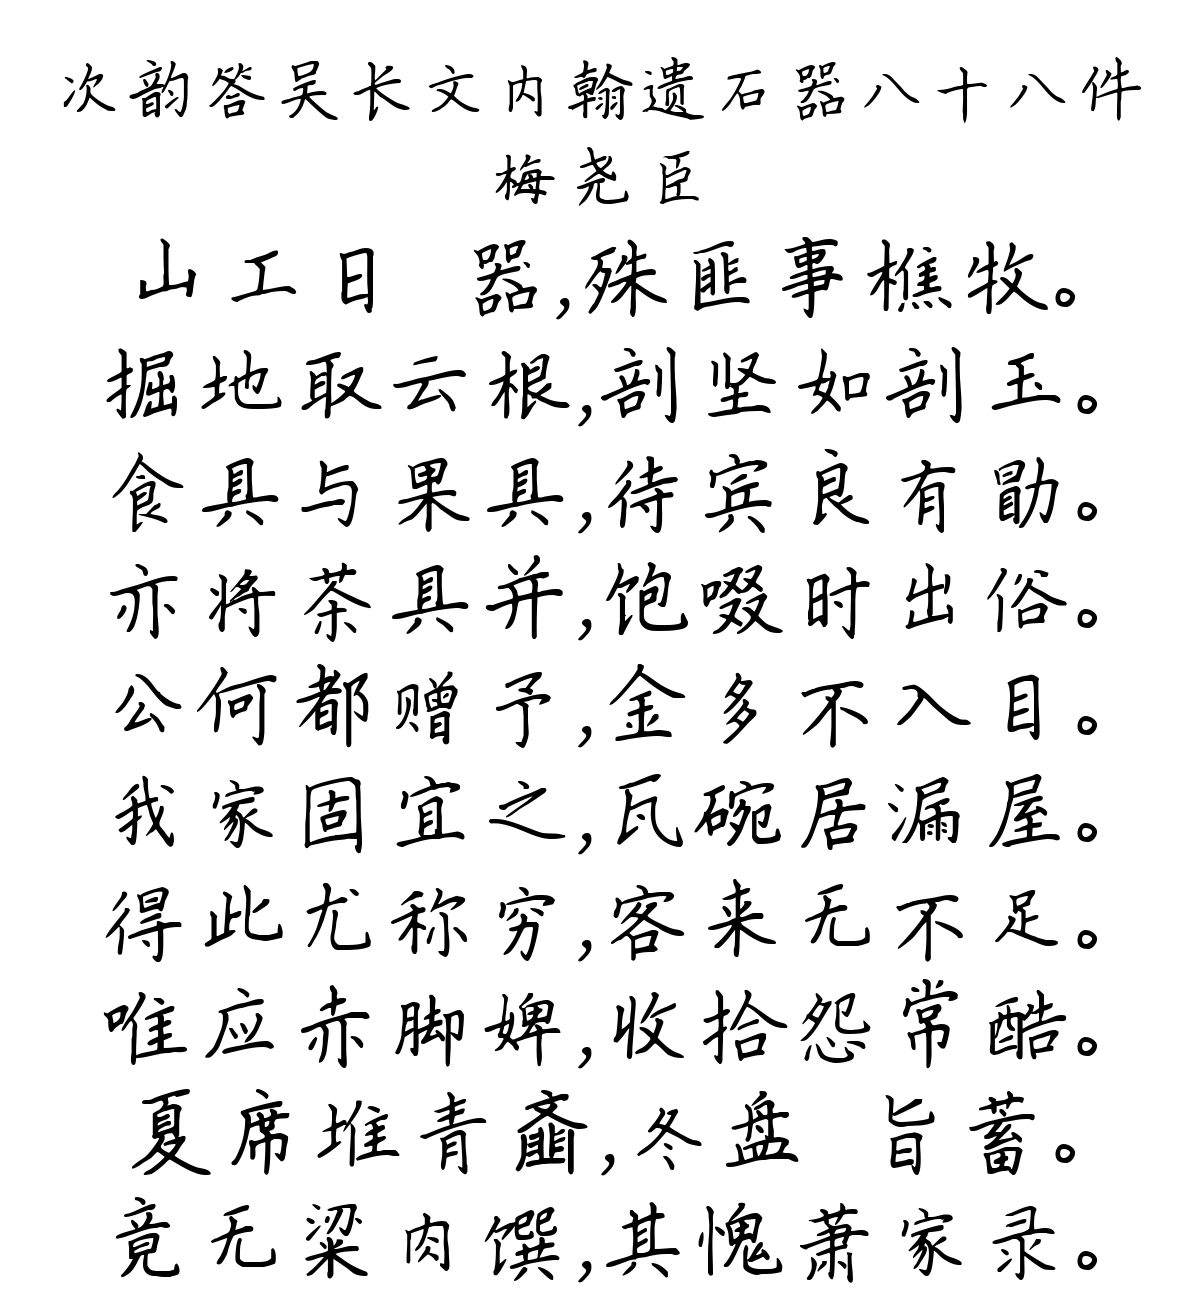 次韵答吴长文内翰遗石器八十八件
梅尧臣
山工日 器,殊匪事樵牧。
掘地取云根,剖坚如剖玉。
食具与果具,待宾良有勖。
亦将茶具并,饱啜时出俗。
公何都赠予,金多不入目。
我家固宜之,瓦碗居漏屋。
得此尤称穷,客来无不足。
唯应赤脚婢,收拾怨常酷。
夏席堆青齑,冬盘 旨蓄。
竟无粱肉馔,其愧萧家录。